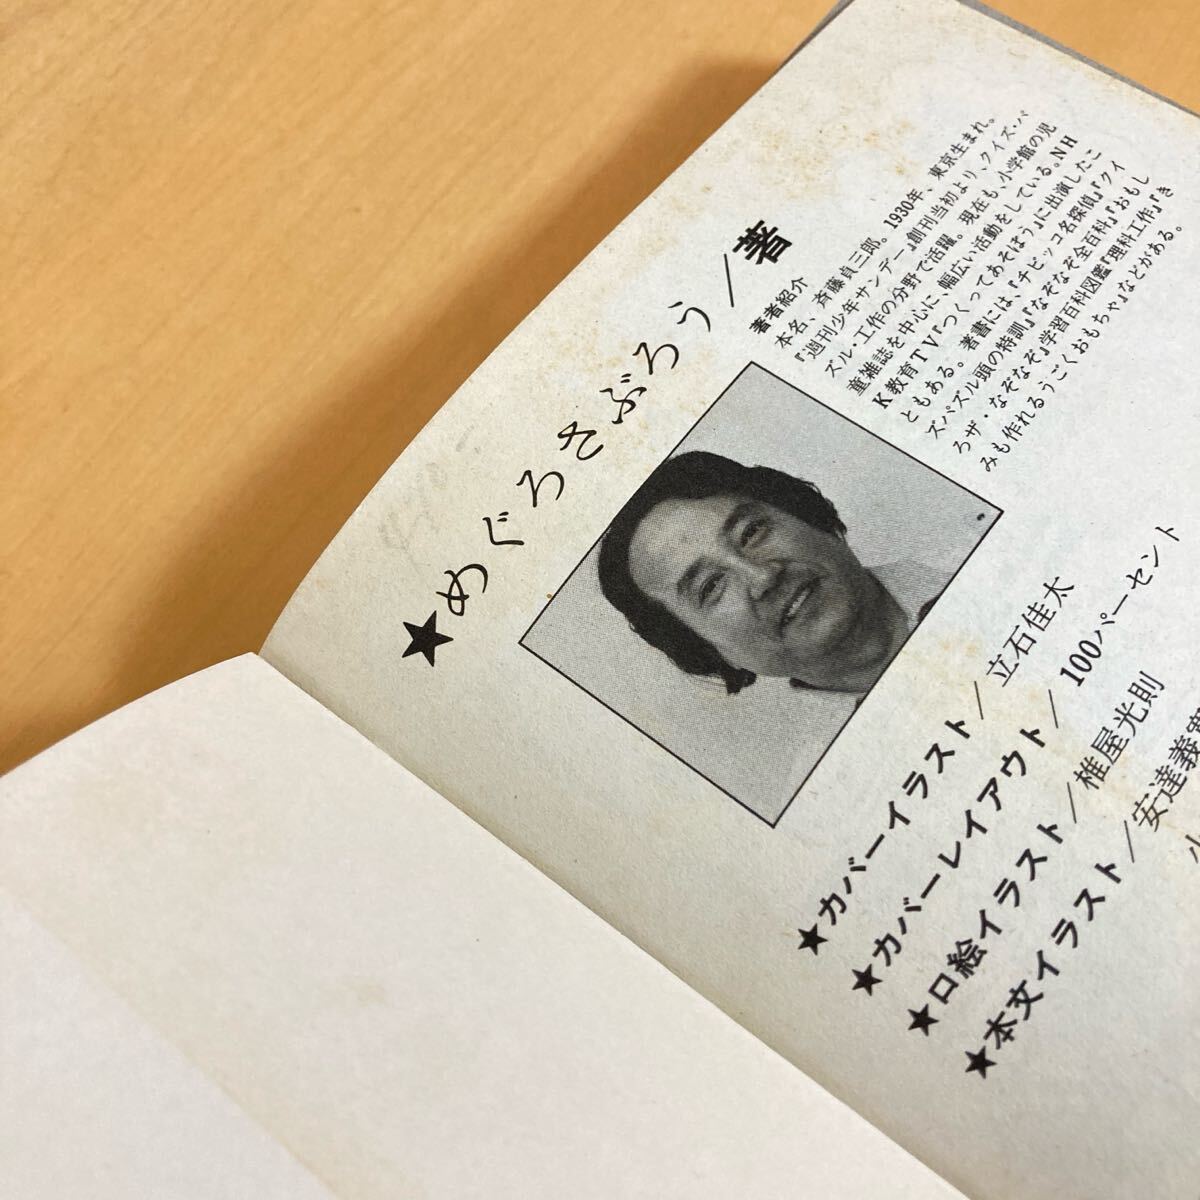 ★めぐろさぶろう/著
著者紹介
本名、斉藤貞三郎。1930年、東京生まれ。
『週刊少年サンデー』創刊当初より、クイズ・パ
ズル・工作の分野で活躍。現在も、小学館の児
童雑誌を中心に、幅広い活動をしている。NH
K教育TV『つくってあそぼう』に出演したこ
ともある。著書には、『チビッコ名探偵』『クイ
ズパズル頭の特訓』『なぞなぞ全百科』『おもし
ろザ・なぞなぞ』学習百科図鑑『理科工作』『き
みも作れるうごくおもちゃ』などがある。
★カバーイラスト/立石佳太
★カバーレイアウト/100パーセント
★口絵イラスト/椎屋光則
★本文イラスト/安達義寛